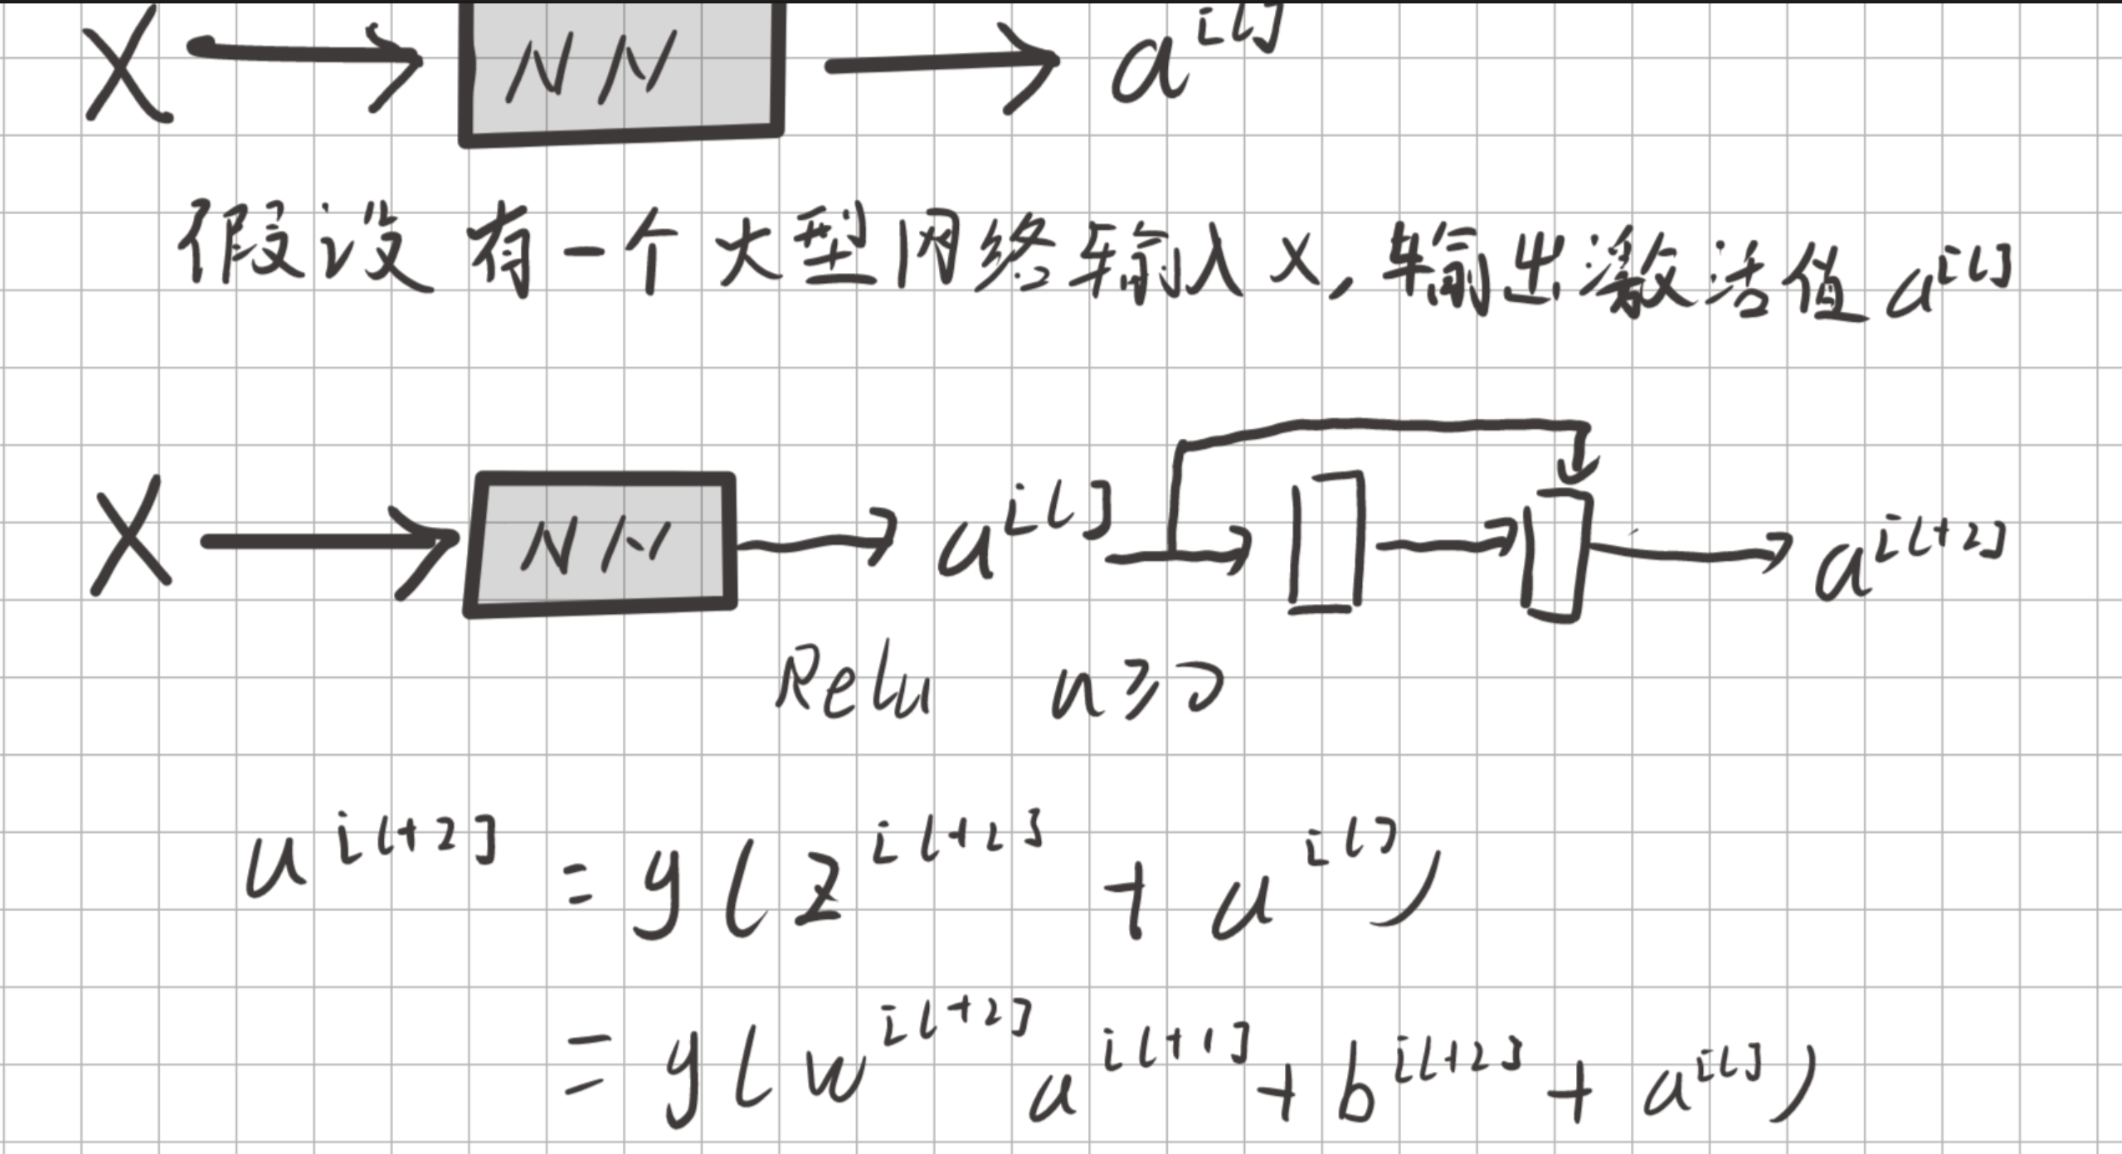 X → NN → a^[l]
假设有一个大型网络输入X,输出激活值a^[l]
X → NN → a^[l] → → a^[l+2]
Relu a≥0
a^[l+2] = g(z^[l+2] + a^[l])
= g(w^[l+2] a^[l+1] + b^[l+2] + a^[l])